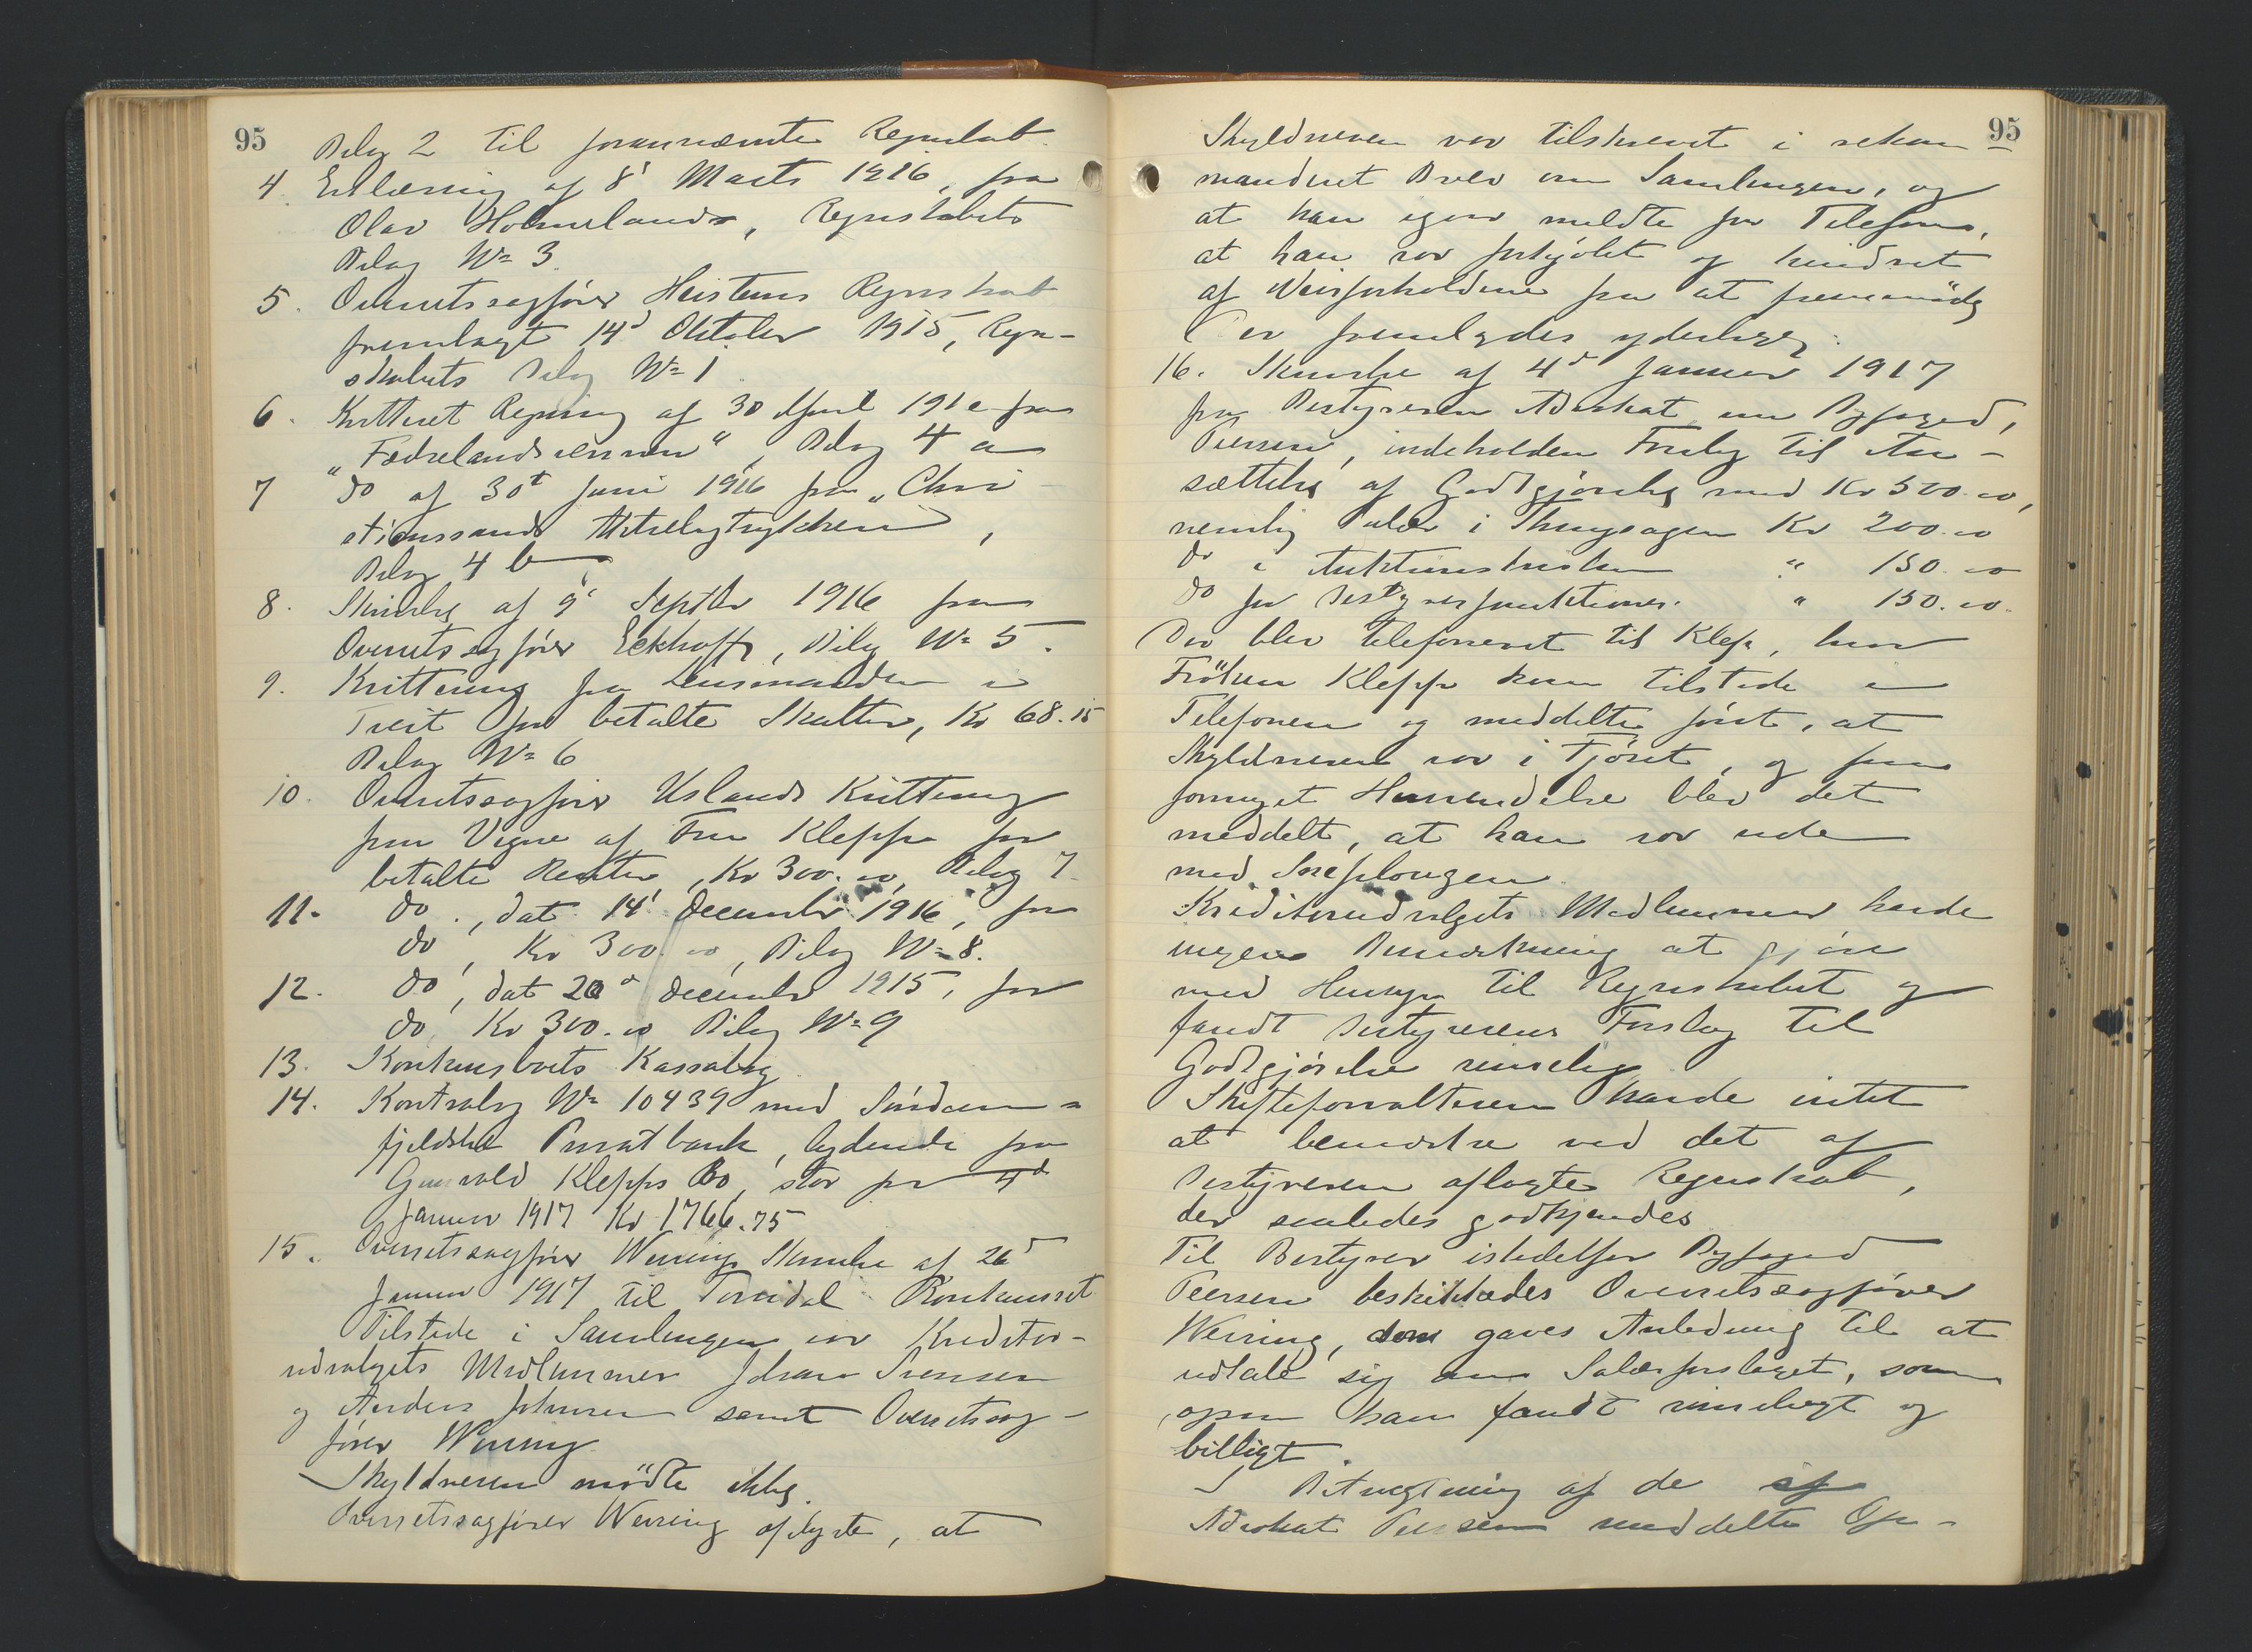 95
Bilag 2 tilforannævnte Regnskab.
4. Erklæring af 8' Marts 1916, fra
Olav Holmeland, Regnskabets
Bilag No 3.
5. Overretssagfører Heistems Regnskab
fremlagt 14d Oktober 1915, Regn-
skabets Bilag No 1.
6. Kvitteret Regning af 30 April 1916 fra
"Fædrelandsvennen", Bilag 4 a
7 do af 30t Juni 1916 fra "Chri-
stianssands Aktiebogtrykkeri",
Bilag 4 b
8. Skrivelse af 9' Septbr 1916 fra
Overretssagfører Eckhoff, Bilag No 5.
9. Kvittering fra Lensmanden i
Treit for betalte Skatter, Kr 68.15
Bilag No 6
10. Overretssagfører Uslands Kvittering
paa Vegne af Fru Klepp for
betalte Renter, Kr 300.00, Bilag 7.
11. do., dat. 14' December 1916, for
do, Kr 300.00, Bilag No 8.
12. do, dat 20d December 1915, for
do, Kr 300.00 Bilag No 9
13. Konkursboets Kassabog.
14. Kontrabog No 10439 med Søndenn-
fjeldske Privatbank, lydende paa
Gunvald Klepps Bo, stor pr 4d
Januar 1917 Kr 1766.75
15. Overretssagfører Wernings Skrivelse af 26d
Januar 1917 til Torridal Konkursret
Tilstede i Samlingen var Kreditor-
udvalgets Medlemmer Johan Svensen
og Anders Johnsen samt Overretssag-
fører Werring.
Skyldneren mødte ikke.
Overretssagfører Werring oplyste, at
95
Skyldneren var tilskrevet i rekom-
manderet Brev om Samlingen, og
at han igaar meldte pr Telefon,
at han var forkjølet og hindret
af Veirforholdene fra at fremmøde
Der fremlagdes yderligere:
16. Skrivelse af 4d Januar 1917
fra Bestyreren Advokat, nu Byfoged,
Peersen, indeholden Forslag til An-
sættelse af Godtgjørelse med Kr 500.00,
nemlig Salær i Thingsagen Kr 200.00
do i Auktionskrisen " 150.00
do for Bestyrerfunktioner. " 150.00.
Der blev telefoneret til Klep, hvor
Frøken Klepp kom tilstede i
Telefonen og meddelte først, at
Skyldneren var i Fjøset, og paa
fornyet Henvendelse blev det
meddelt, at han var ude
med Sneplougen.
Kreditorudvalgets Medlemmer havde
ingen Bemerkning at gjøre
med Hensyn til Regnskabet og
fandt Bestyrerens Forslag til
Godtgjørelse rimelig.
Skifteforvalteren havde intet
at bemerke ved det af
Bestyreren aflagte Regnskab,
der saaledes godkjendes
Til Bestyrer istedetfor Byfoged
Peersen beskikkedes Overretssagfører
Werring, som gaves Anledning til at
udtale sig om Salærforslaget, som
ogsaa han fandt rimeligt og
billigt.
I Betragtning af de af
Advokat Peersen meddelte Op-